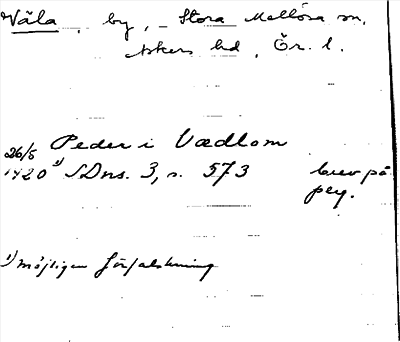 Väla, by, Stora Mellösa sn,
Askers hd, Ör. l.
Peder i Vædlom
26/5
1420 1) SDns. 3, s. 573 brev på
perg.
1) möjligen förfalskning